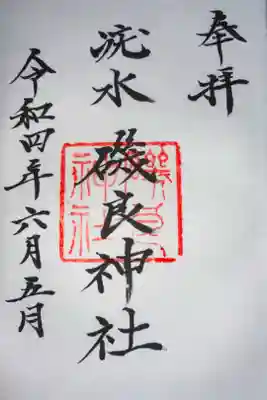 奉拝
疣水 磯良神社
磯良神社
令和四年六月五月